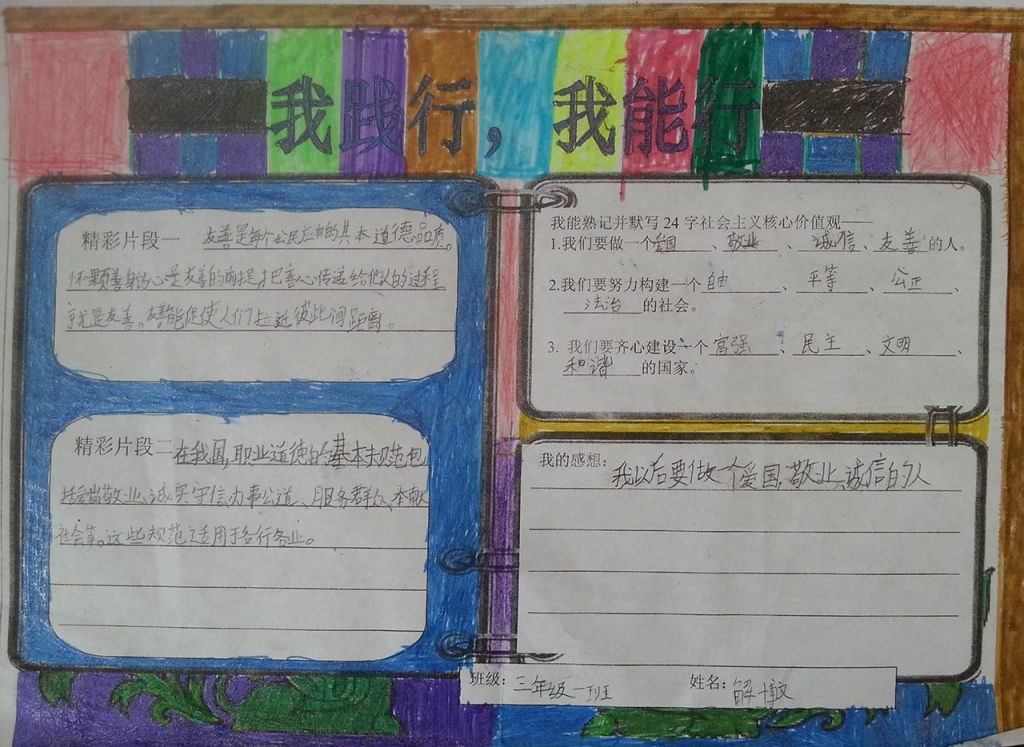 我践行，我能行
精彩片段一 友善是每个公民应有的基本道德品质。
怀一颗善良的心是友善的前提,把善心传递给他人的过程
就是友善。友善能促使人们拉近彼此间距离。
精彩片段二 在我国,职业道德的基本规范包
括爱岗敬业、诚实守信、办事公道、服务群众、奉献
社会等。这些规范适用于各行各业。
我能熟记并默写 24 字社会主义核心价值观——
1.我们要做一个爱国、敬业、诚信、友善的人。
2.我们要努力构建一个自由、平等、公正、
法治的社会。
3. 我们要齐心建设一个富强、民主、文明、
和谐的国家。
我的感想：我以后要做一个爱国、敬业、诚信的人
班级：三年级一班 姓名：解